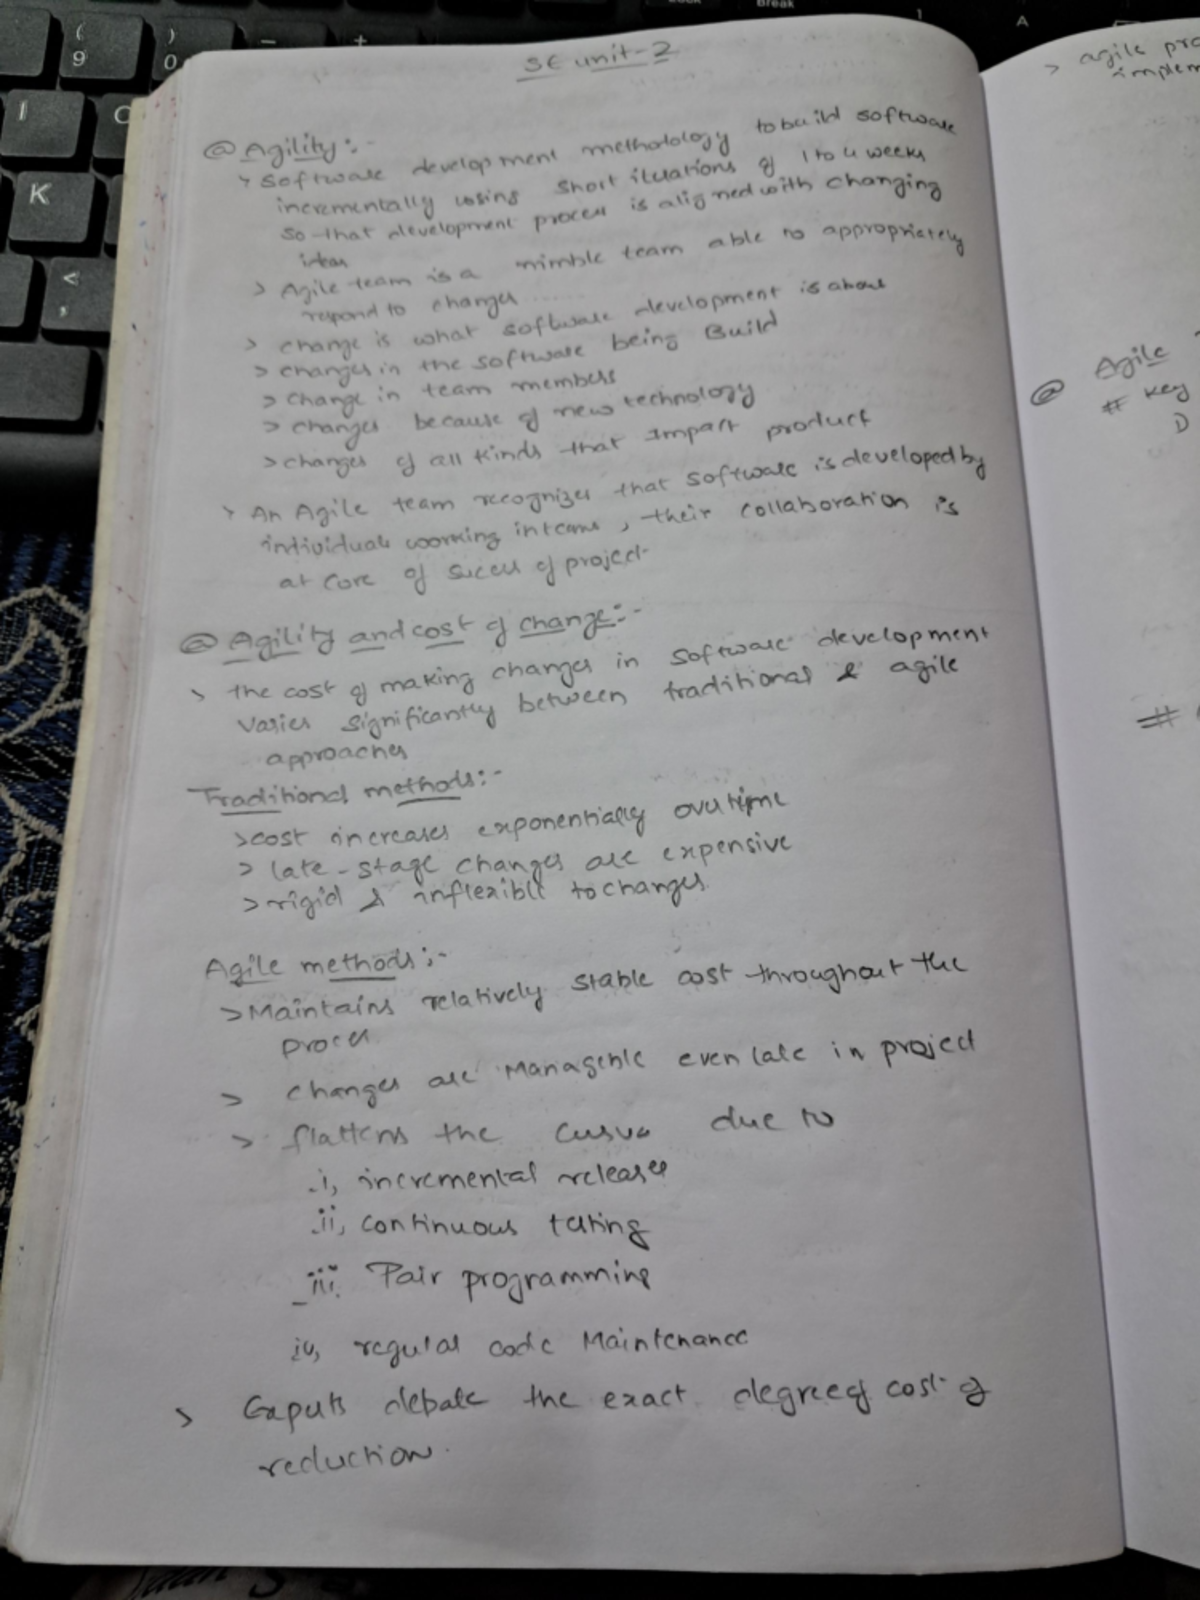 SE unit-2
@ Agility:-
> Software development methodology to build software
incrementally using short ituations of 1 to 4 weeks
so that development process is aligned with changing
ideas
> Agile team is a nimble team able to appropriately
respond to changes
> change is what software development is about
> changes in the software being Build
> change in team members
> changes because of new technology
> changes of all kinds that impact product
> An Agile team recognizes that software is developed by
individuals working in teams, their collaboration is
at core of success of project
@ Agility and cost of change:-
> the cost of making changes in software development
varies significantly between traditional & agile
approaches
Traditional methods:-
> cost increases exponentially over time
> late-stage changes are expensive
> rigid & inflexible to changes.
Agile methods:-
> Maintains relatively stable cost throughout the
process.
> changes are Managable even late in project
> flattens the curve due to
i, incremental releases
ii, continuous testing
iii. Pair programming
iv, regular code Maintenance
> Experts debate the exact degree of cost of
reduction.
> agile pro
implem
@ Agile
# key
1)
#